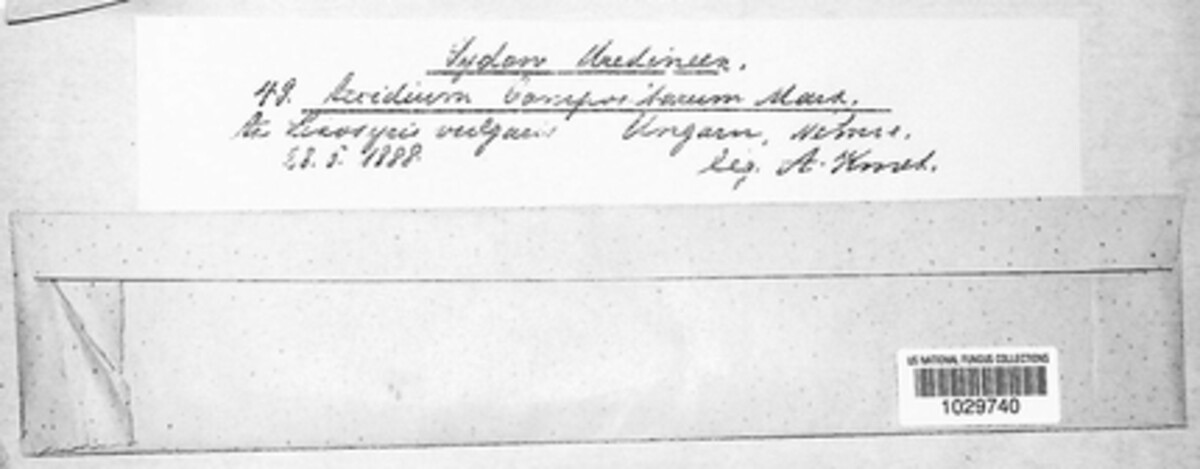 Sydow Uredineen.
49. Aecidium Compositarum Mart.
Linosyris vulgaris Ungarn,
28. 5. 1888. leg. A. Kmet.
US NATIONAL FUNGUS COLLECTIONS
1029740